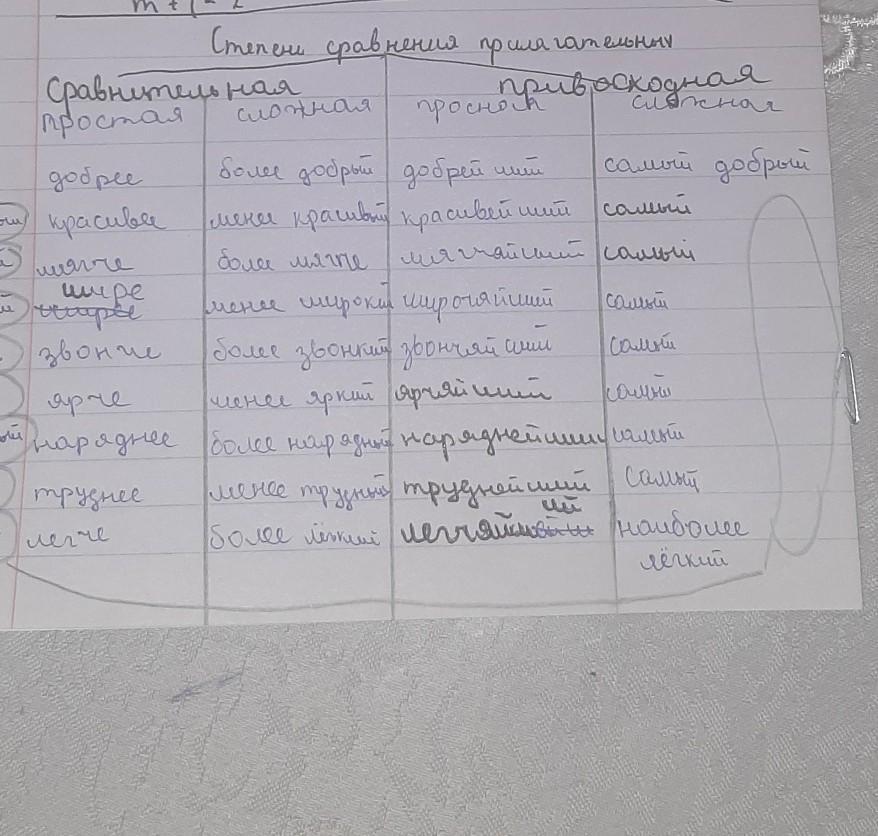 Степени сравнения прилагательных
Сравнительная привосходная
простая сложная простая сложная
добрее более добрый добрейший самый добрый
красивее менее красивый красивейший самый
мягче более мягче мягчайший самый
шире
менее широкий широчайший самый
звонче более звонкий звончайший самый
ярче менее яркий ярчайший самый
наряднее более нарядный наряднейший самый
труднее менее трудный труднейший самый
легче более лёгкий легчайший наиболее
лёгкий